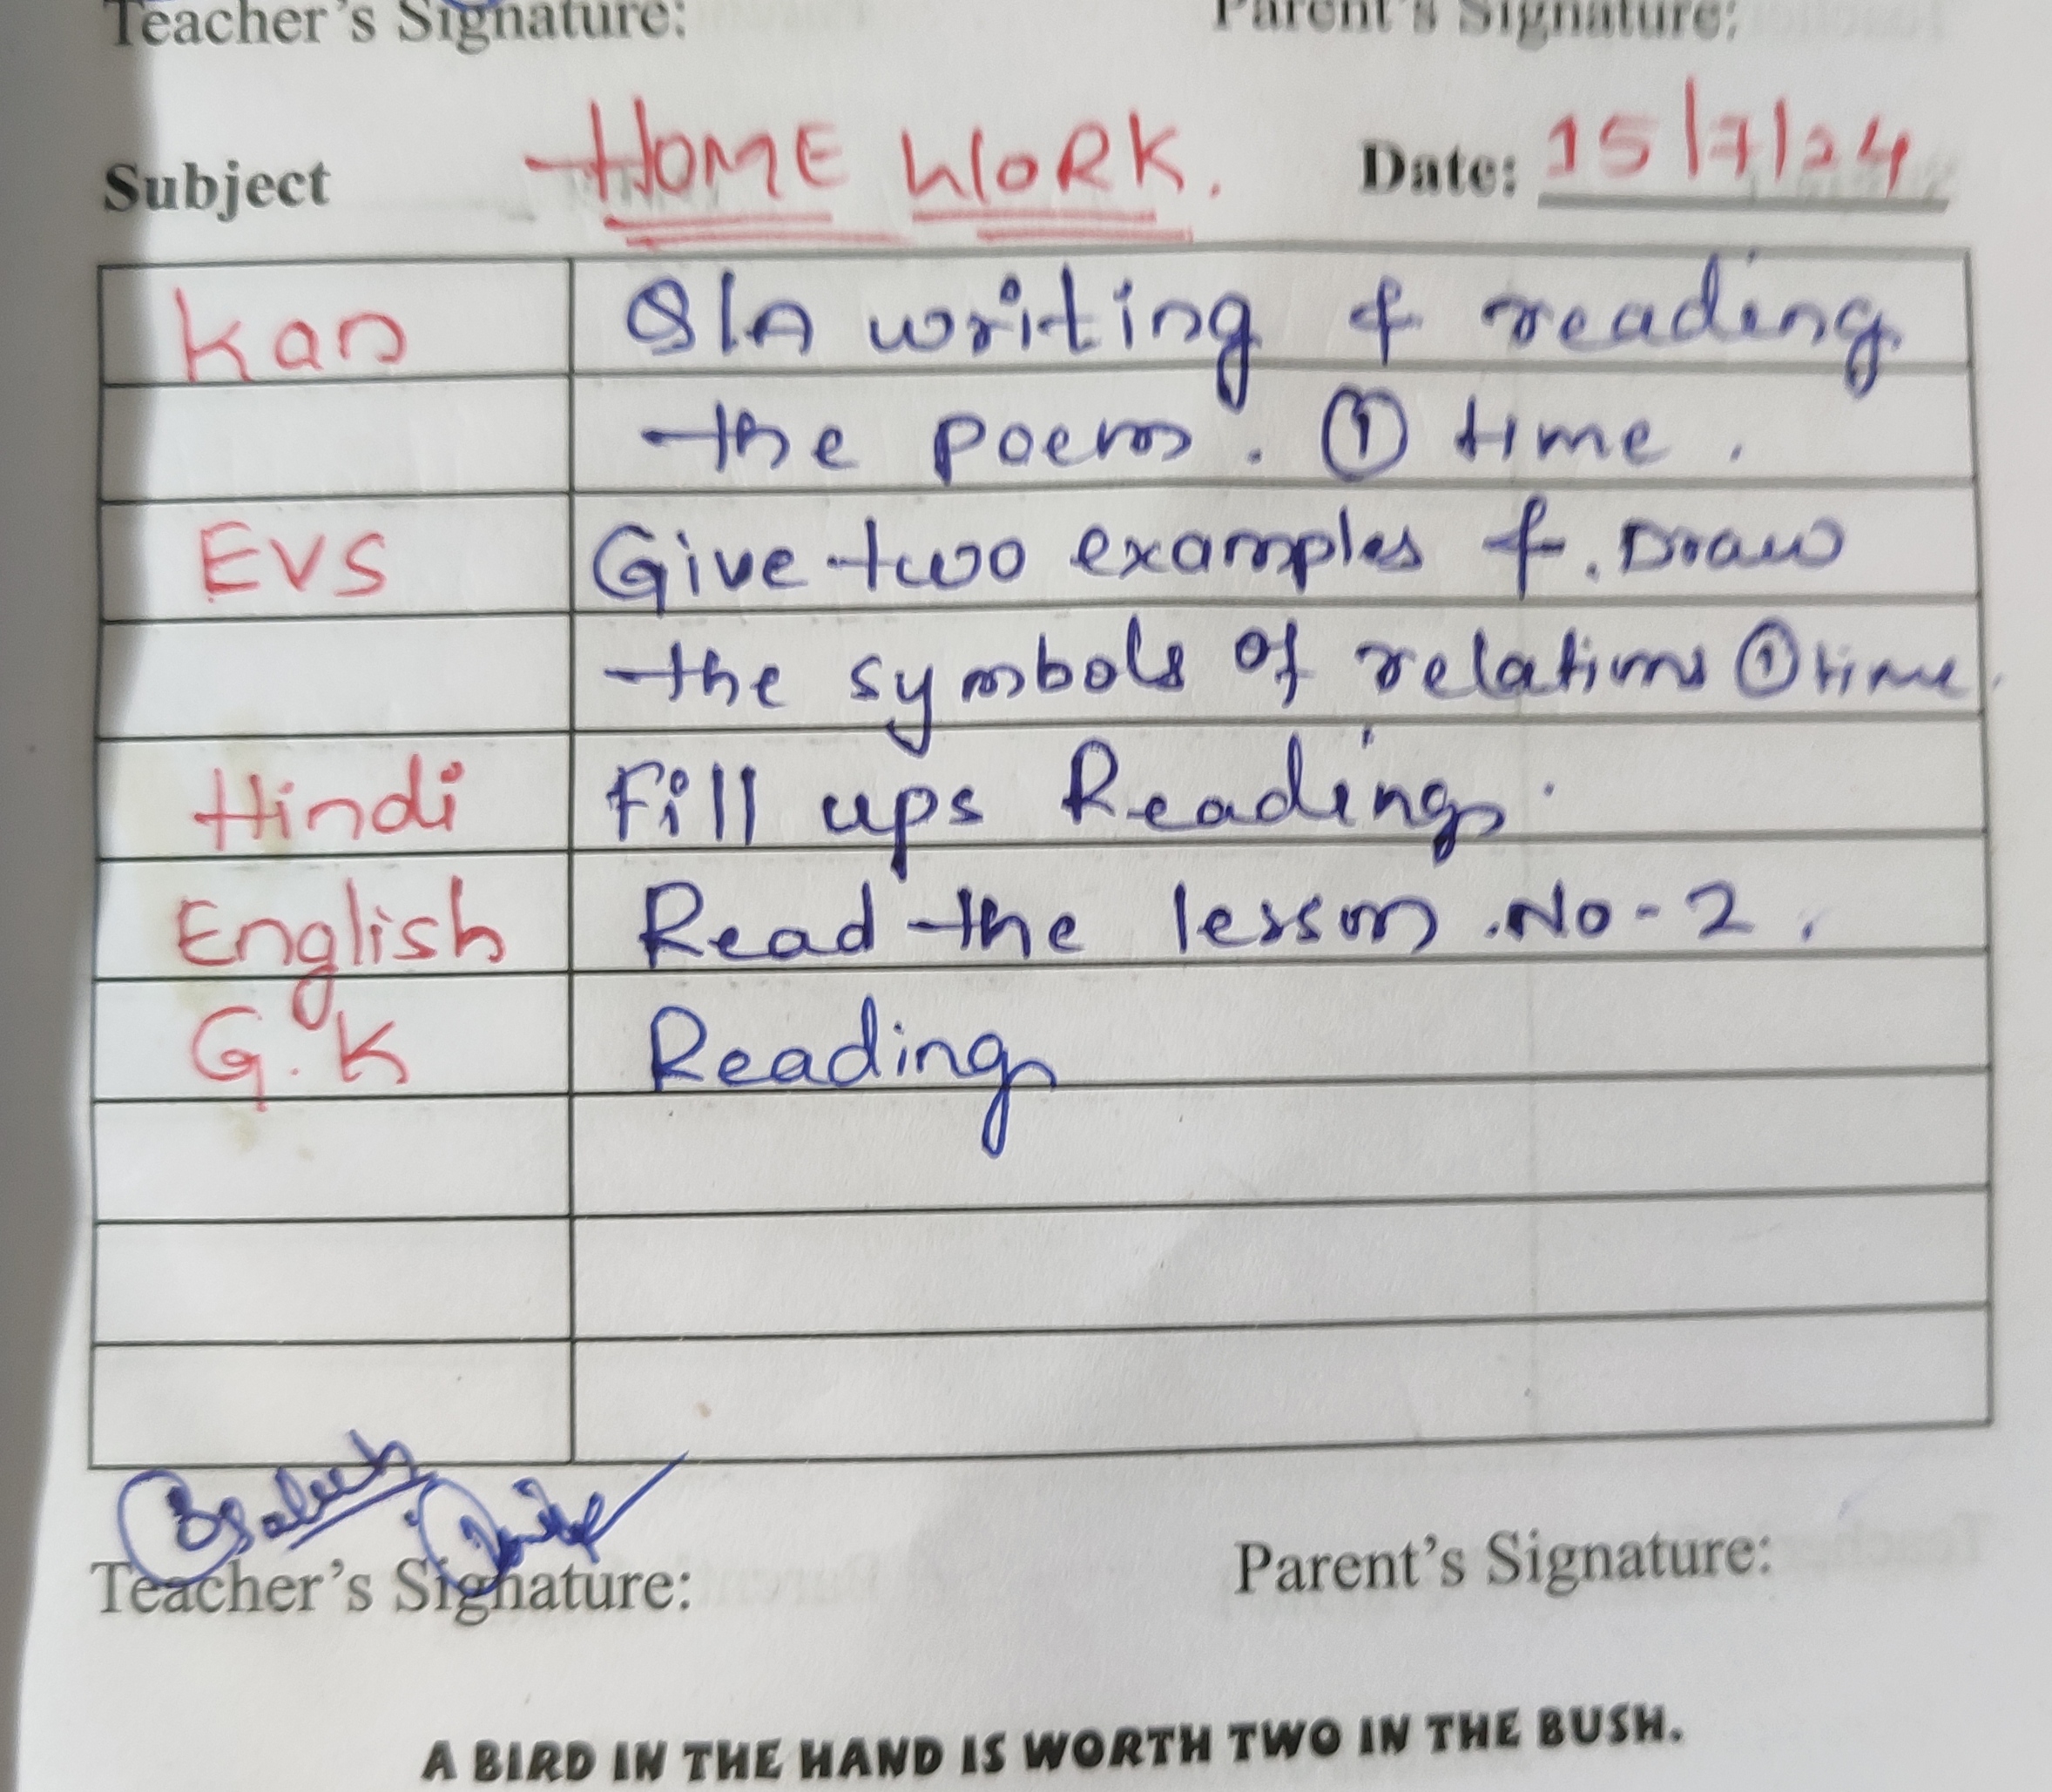 Teacher's Signature: Parent's Signature:
Subject HOME WORK. Date: 15/7/24
Kan Q/A writing & reading
the poem. ① time.
EVS Give two examples &. Draw
the symbols of relations ① time.
Hindi Fill ups Reading.
English Read the lesson .No-2.
G.K Reading
Teacher's Signature: Parent's Signature:
A BIRD IN THE HAND IS WORTH TWO IN THE BUSH.